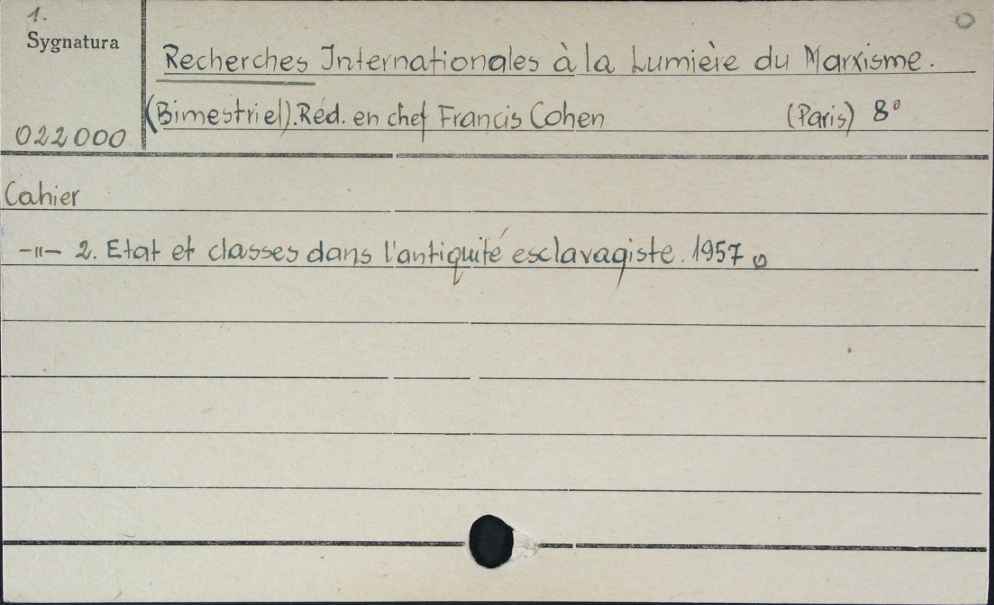 1.
Sygnatura
022000
Recherches Internationales à la Lumière du Marxisme.
(Bimestriel). Réd. en chef Francis Cohen (Paris) 8°
Cahier
-"- 2. Etat et classes dans l'antiquité esclavagiste. 1957